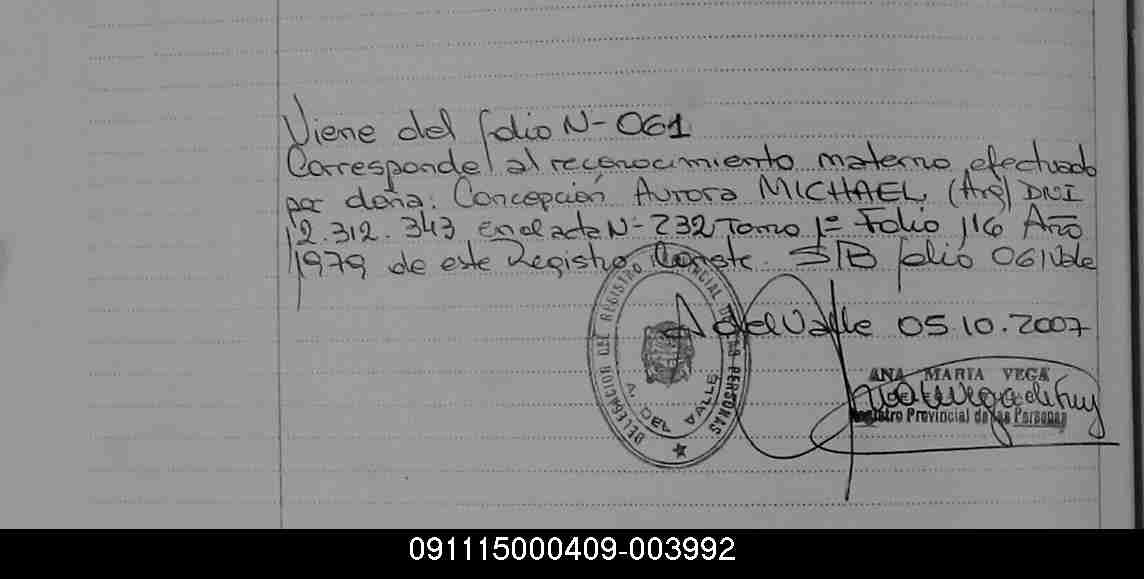 Viene del folio N- 061
Corresponde al reconocimiento materno efectuado
por doña: Concepción Aurora MICHAEL (Arg) DNI
12.312.343 En el acta N- 232 Tomo 1º Folio 116 Año
1979 de este Registro Conste. S/B folio 061 Vale
A del Valle 05.10.2007
DELEGACION DEL REGISTRO PROVINCIAL DE LAS PERSONAS
A. DEL VALLE
ANA MARIA VEGA
Registro Provincial de las Personas
091115000409-003992